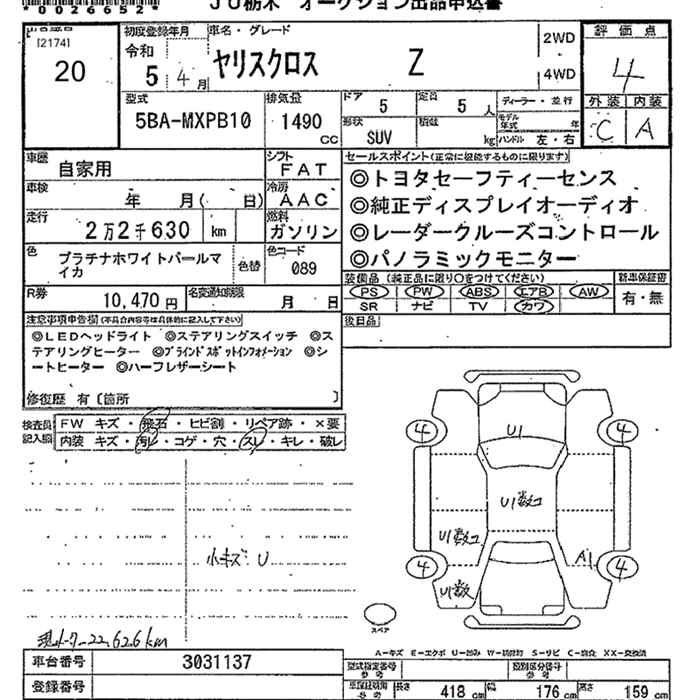 0026652
JU栃木 オークション出品申込書
出品番号
[2174]
20
初度登録年月
令和
5 4月
車名・グレード
ヤリスクロス Z
2WD
4WD
評価点
4
外装 内装
C A
型式
5BA-MXPB10
排気量
1490
CC
ドア
5
定員
5 人
形状
SUV
積載
kg
ディーラー・並行
モデル年式 年
ハンドル 左・右
車歴
自家用
シフト
FAT
車検
年 月( 日)
冷房
AAC
走行
2万2千630 km
燃料
ガソリン
色
プラチナホワイトパールマイカ
色替
色コード
089
R券
10,470円
名変通知期限
月 日
セールスポイント(正常に機能するものに限ります)
◎トヨタセーフティーセンス
◎純正ディスプレイオーディオ
◎レーダークルーズコントロール
◎パノラミックモニター
装備品(純正品に限り○をつけてください)
PS PW ABS エアB AW
SR ナビ TV カワ
新車保証書
有・無
後日品
注意事項申告欄(不具合内容等は具体的に記入して下さい)
◎LEDヘッドライト ◎ステアリングスイッチ ◎ス
テアリングヒーター ◎ブラインドスポットインフォメーション ◎シ
ートヒーター ◎ハーフレザーシート
修復歴 有〔箇所 〕
検査員記入欄
FW キズ・飛石・ヒビ割・リペア跡・×要
内装 キズ・汚レ・コゲ・穴・スレ・キレ・破レ
小キズ U
現メーター22,626km
U1
U1数コ
U1数コ
U1数
A1
4
4
4
4
スペア
A-キズ E-エクボ U-凹み W-補修跡 S-サビ C-腐食 XX-交換済
車台番号
3031137
登録番号
型式指定番号
参考
類別区分番号
参考
長さ
418 cm
幅
176 cm
高さ
159 cm